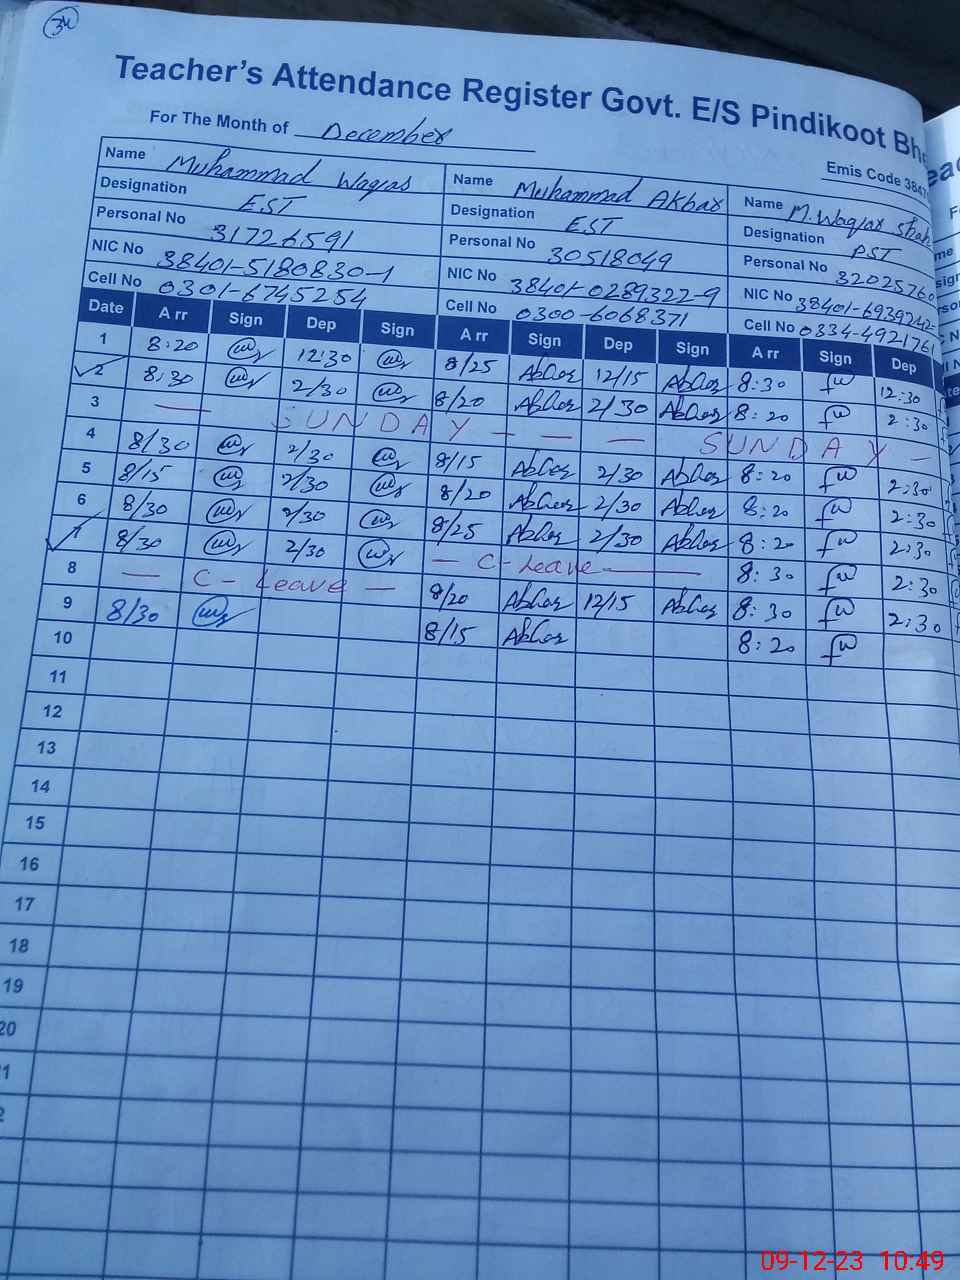 34
Teacher's Attendance Register Govt. E/S Pindikoot
For The Month of December
Emis Code 384
Name Muhammad Waqas Name Muhammad Akbar Name M. Waqar Shah
Designation EST Designation EST Designation PST
Personal No 31726591 Personal No 30518049 Personal No 32025760
NIC No 38401-5180830-1 NIC No 38401-0289322-9 NIC No 38401-6939242-
Cell No 0301-6745254 Cell No 0300-6068371 Cell No 0334-4921761
Date A rr Sign Dep Sign A rr Sign Dep Sign A rr Sign Dep
1 8:20 12:30 8/25 Akbar 12/15 Akbar 8:30 12:30
2 8:30 2/30 8/20 Akbar 2/30 Akbar 8:20 2:30
3 — SUNDAY — — — SUNDAY —
4 8/30 2/30 8/15 Akbar 2/30 Akbar 8:20 2:30
5 8/15 2/30 8/20 Akbar 2/30 Akbar 8:20 2:30
6 8/30 2/30 8/25 Akbar 2/30 Akbar 8:20 2:30
7 8/30 2/30 — C-Leave — 8:30 2:30
8 — C-Leave — 8/20 Akbar 12/15 Akbar 8:30 2:30
9 8/30 8/15 Akbar 8:20
10
11
12
13
14
15
16
17
18
19
20
09-12-23 10:49